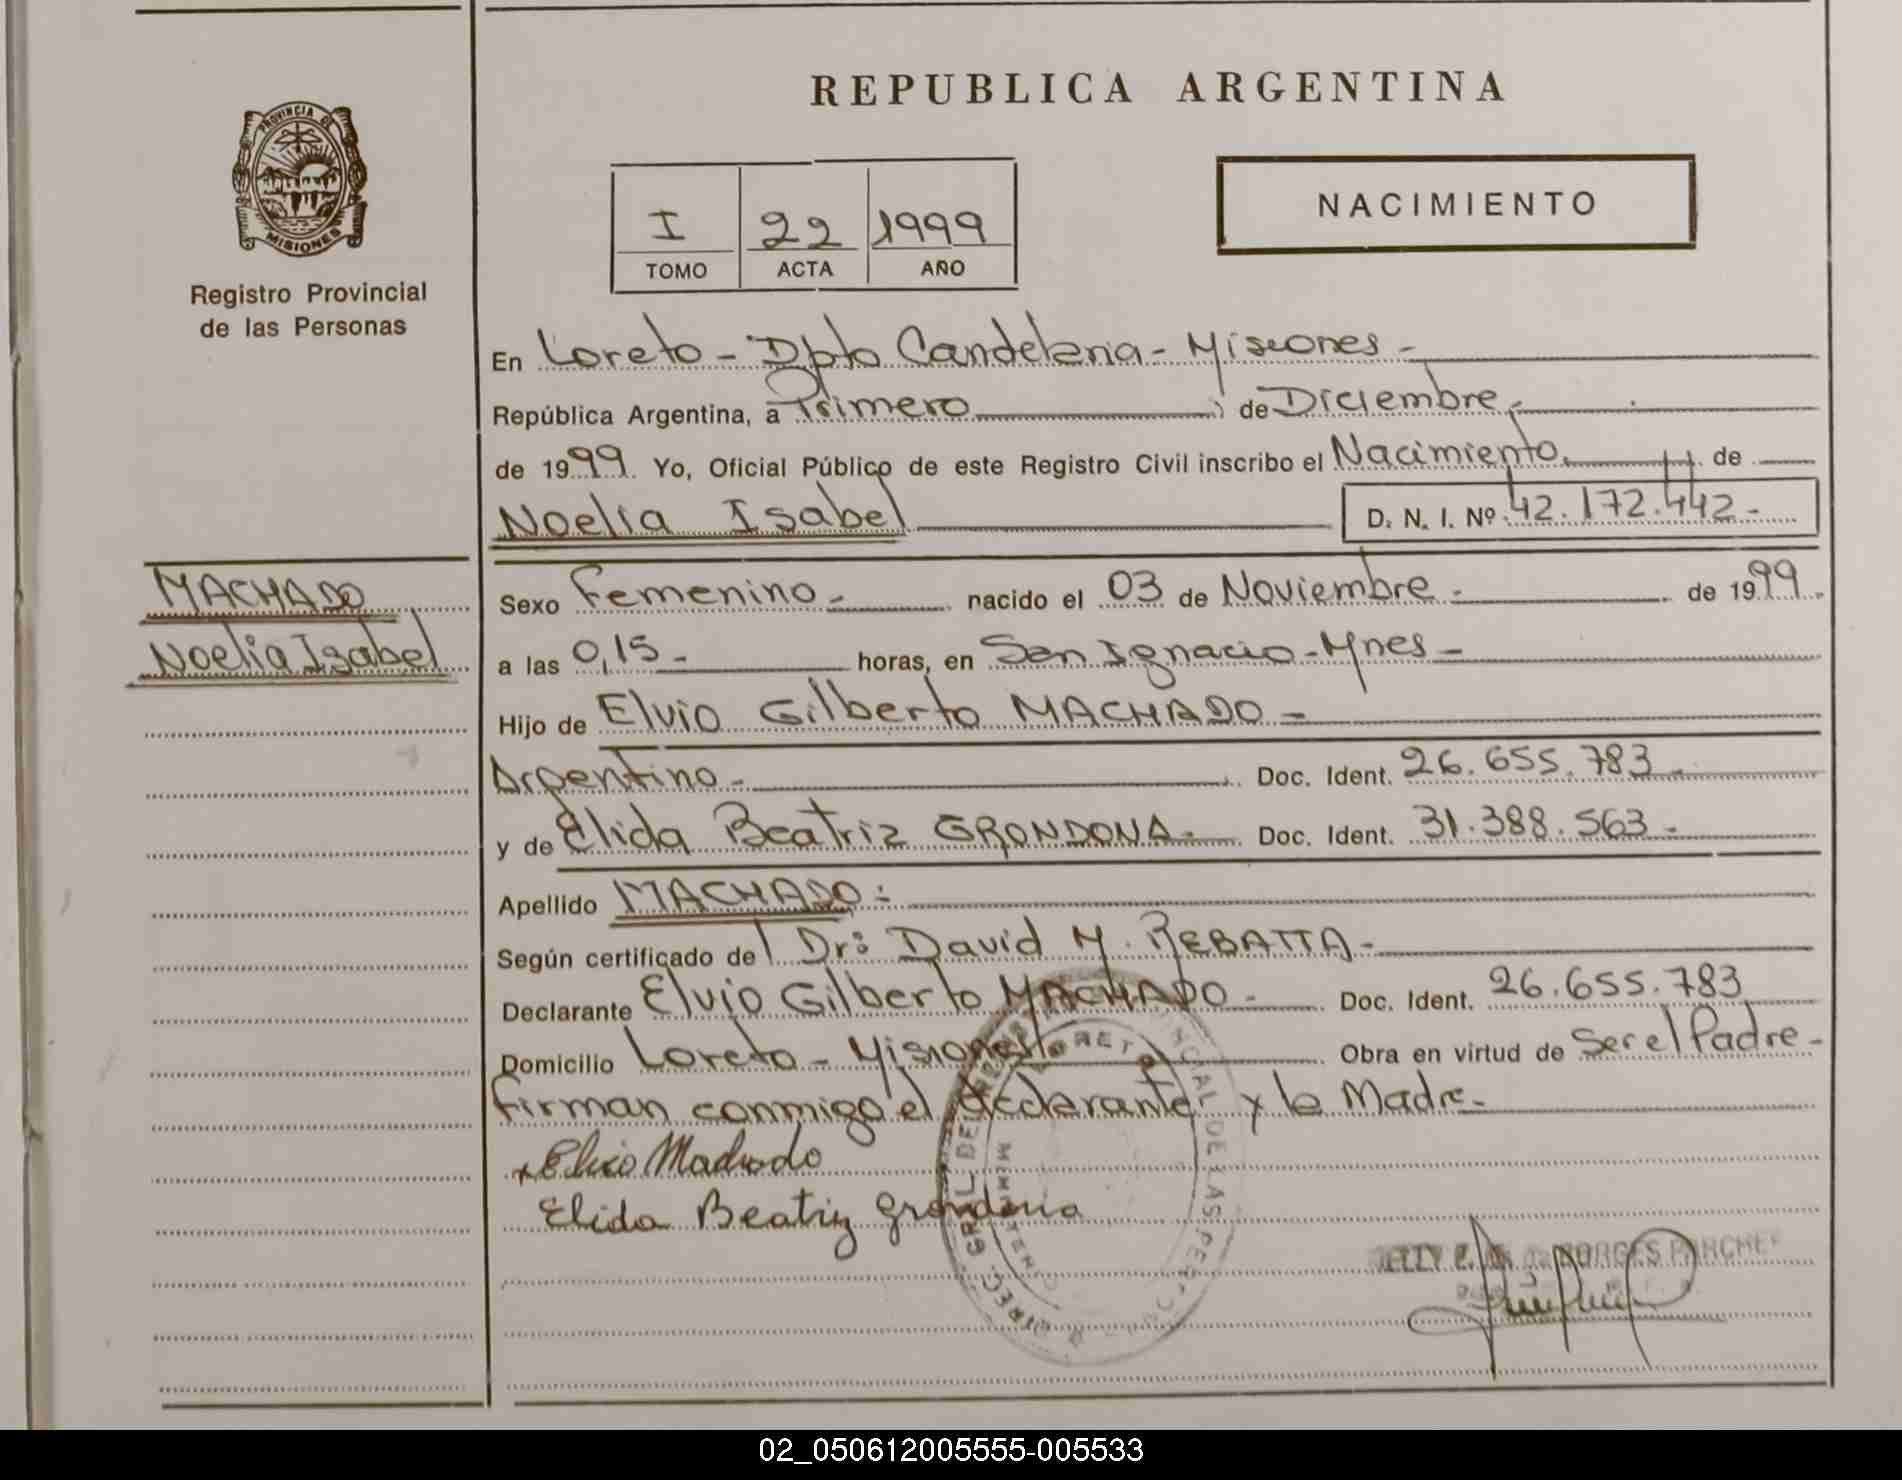 REPUBLICA ARGENTINA
PROVINCIA DE
MISIONES
Registro Provincial
de las Personas
I 22 1999
TOMO ACTA AÑO
NACIMIENTO
En Loreto - Dpto Candelaria - Misiones -
República Argentina, a Primero de Diciembre -
de 1999. Yo, Oficial Público de este Registro Civil inscribo el Nacimiento de
Noelia Isabel D. N. I. Nº 42.172.442 -
MACHADO
Noelia Isabel
Sexo Femenino - nacido el 03 de Noviembre - de 1999.
a las 0,15 - horas, en San Ignacio - Mnes -
Hijo de Elvio Gilberto MACHADO -
Argentino - Doc. Ident. 26.655.783 -
y de Elida Beatriz GRONDONA - Doc. Ident. 31.388.563 -
Apellido MACHADO -
Según certificado de Dr: David M. REBATTA -
Declarante Elvio Gilberto MACHADO - Doc. Ident. 26.655.783
Domicilio Loreto - Misiones Obra en virtud de Ser el Padre -
firman conmigo el declarante y la Madre -
Elvio Machado
Elida Beatriz Grondona
LORETO
DE LAS PERSONAS
BORGES
02_050612005555-005533